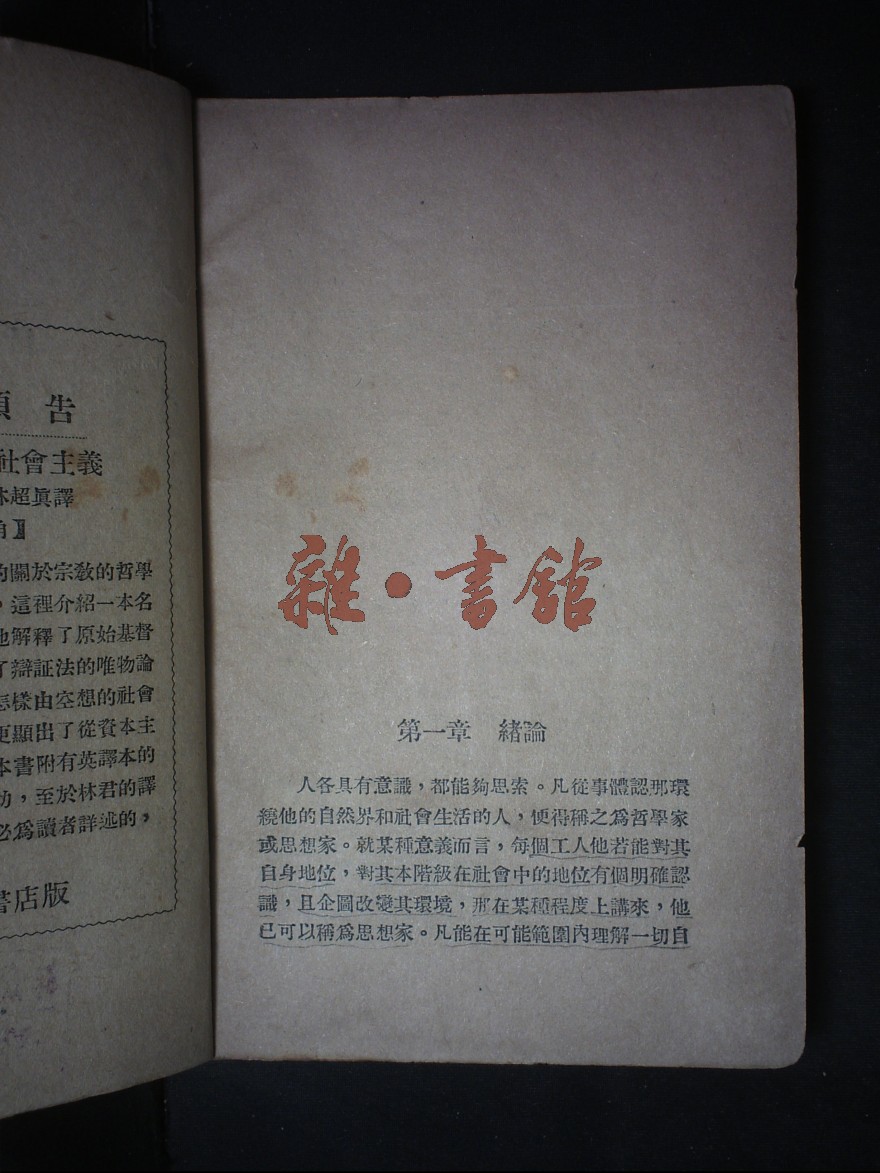 預告
社會主義
林超眞譯
角】
的關於宗敎的哲學
，這裡介紹一本名
他解釋了原始基督
了辯証法的唯物論
怎樣由空想的社會
更顯出了從資本主
本書附有英譯本的
，至於林君的譯
必爲讀者詳述的，
書店版
雜•書館
第一章 緒論
人各具有意識，都能夠思索。凡從事體認那環
繞他的自然界和社會生活的人，便得稱之爲哲學家
或思想家。就某種意義而言，每個工人他若能對其
自身地位，對其本階級在社會中的地位有個明確認
識，且企圖改變其環境，那在某種程度上講來，他
已可以稱爲思想家。凡能在可能範圍內理解一切自